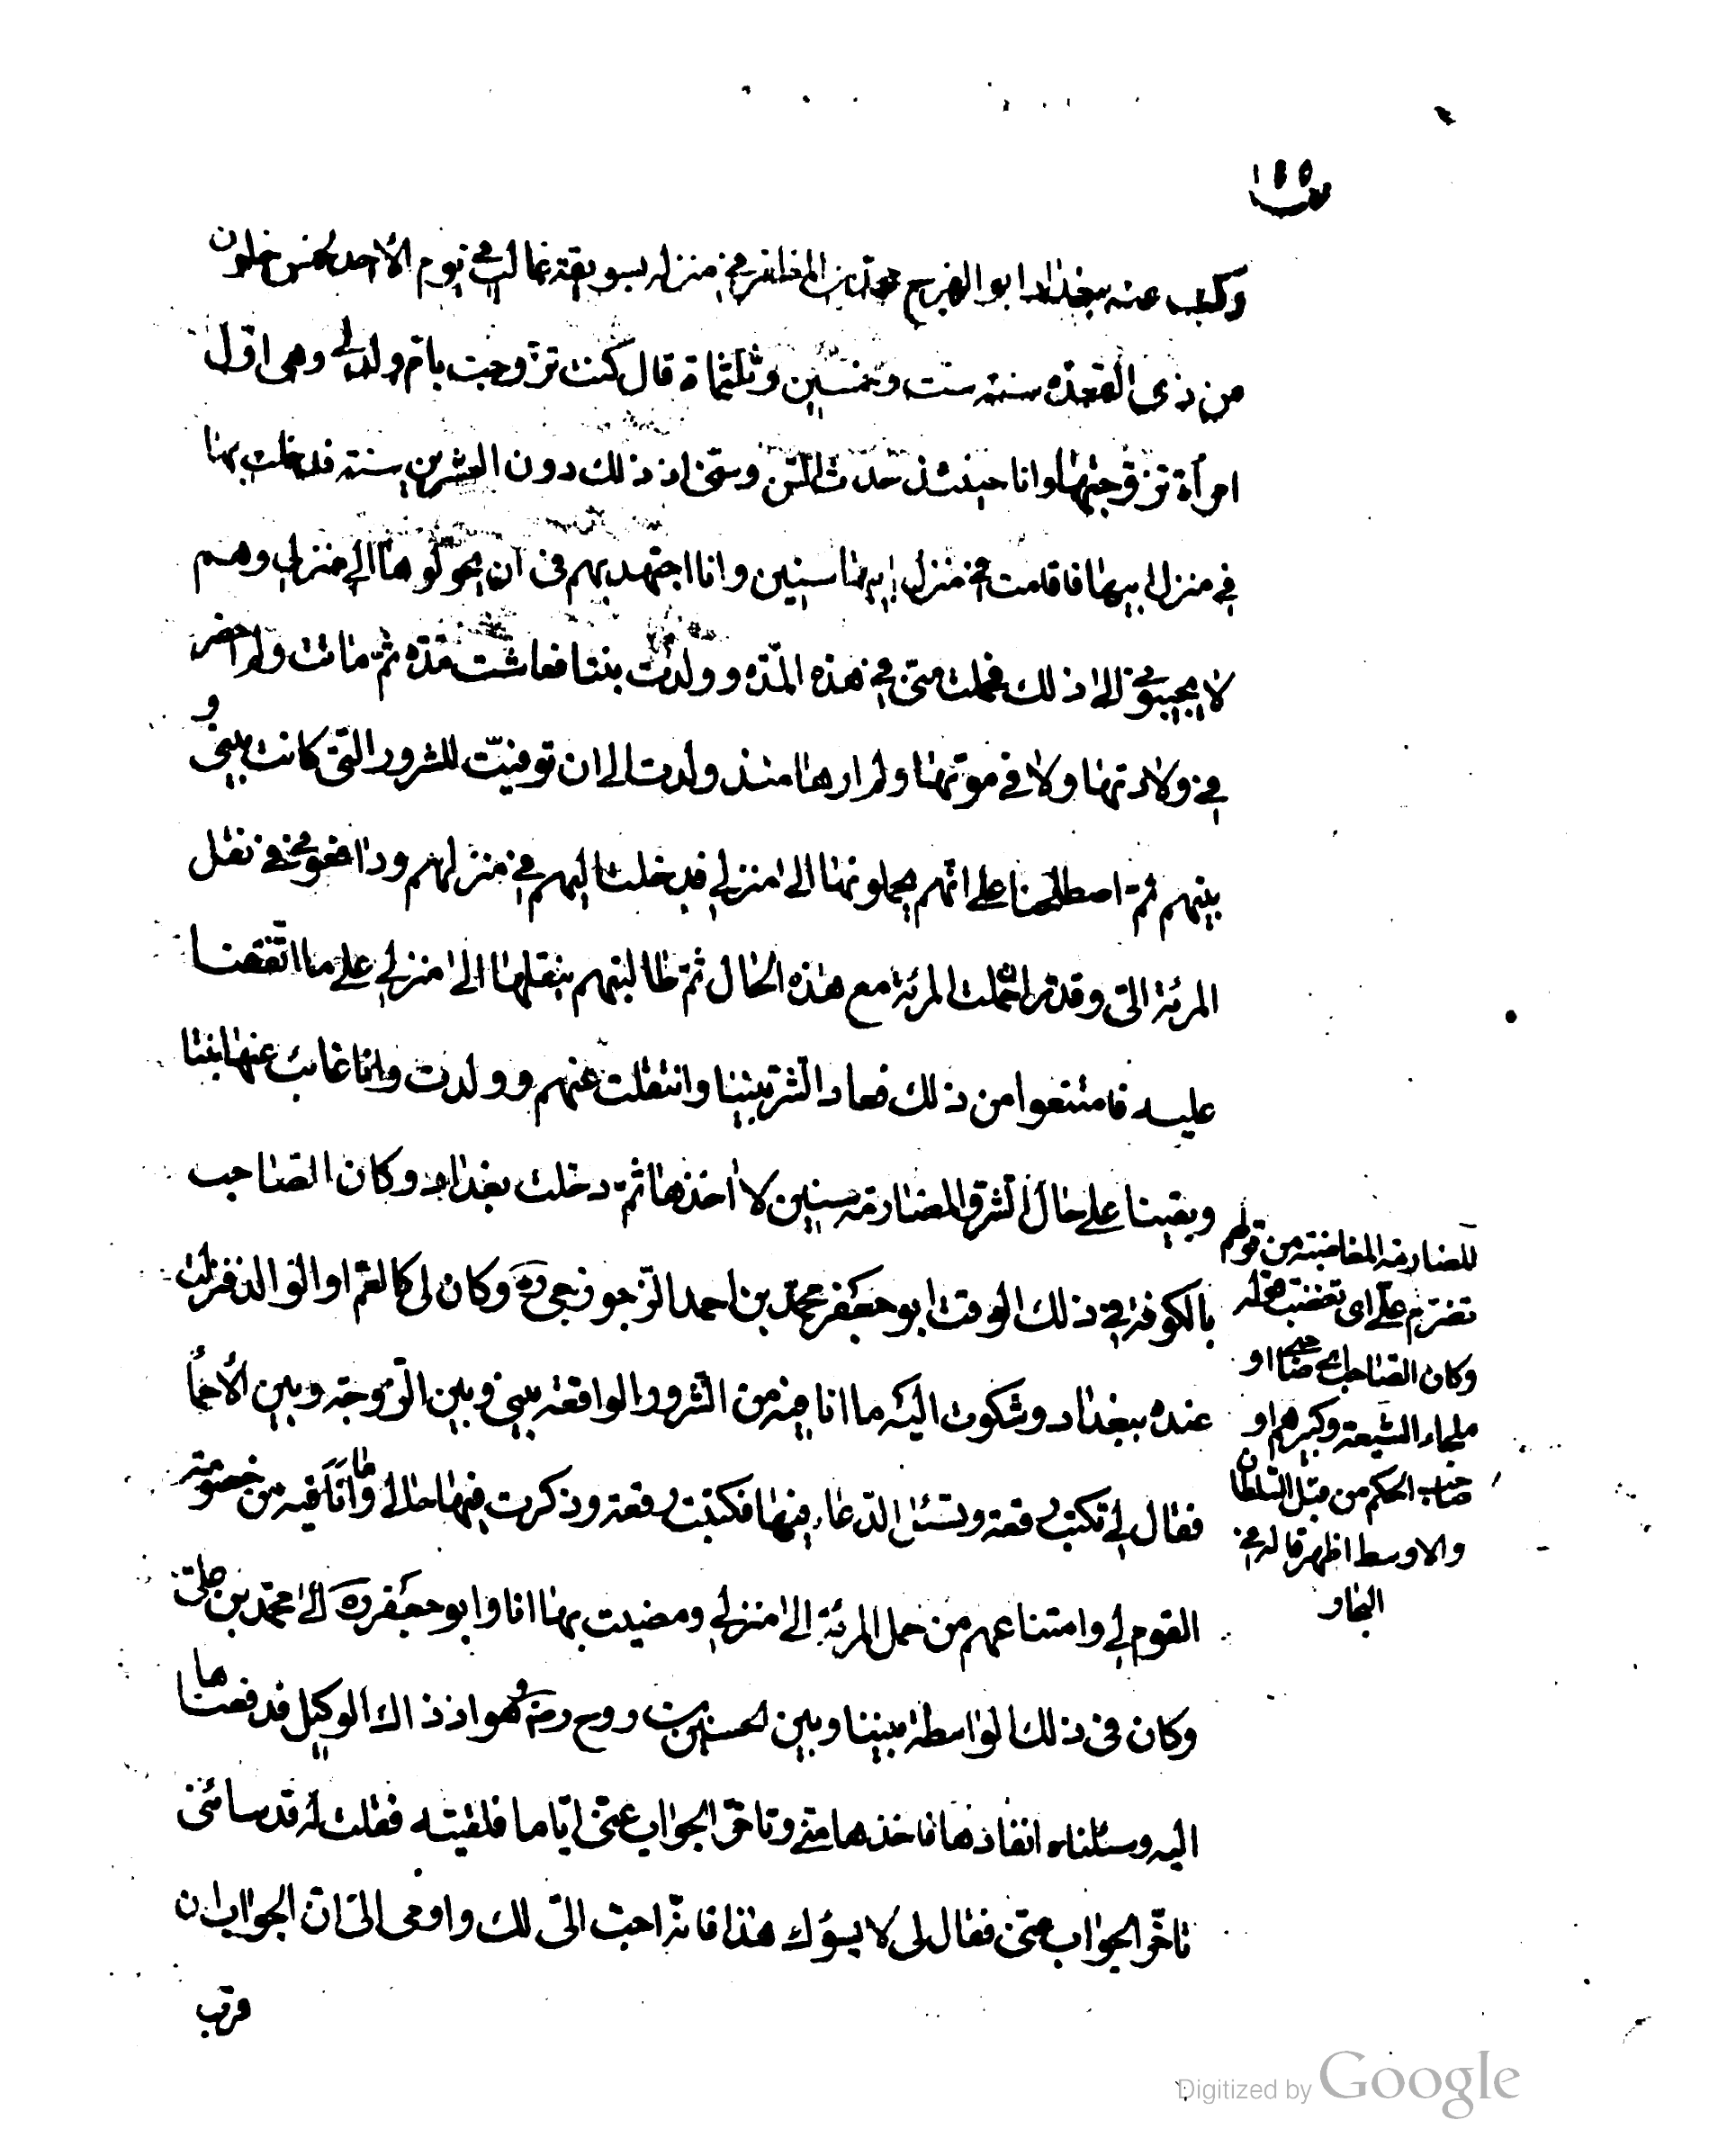 ١٥٥
وكتب عنه ببغداد ابو الفرج محمد بن المظفر في منزله بسويقة غالب في يوم الأحد لخمس خلون
من ذي القعده سنة ست وخمسين وثلثماة قال كنت تزوجت بام ولدي وهي اول
امرأة تزوجتها وانا حينئذ حدث السن وسني اذ ذلك دون العشرين سنة فدخلت بها
في منزل ابيها فاقامت في منزل ابيها سنين وانا اجتهد بهم في ان يحولوها الى منزلي وهم
لا يجيبوني الى ذلك فحملت مني في هذه المدّه وولدت بنتا فعاشت مدّه ثم ماتت ولم احضر
في ولادتها ولا في موتها ولم ارها منذ ولدت الى ان توفيت للشرور التي كانت بيني و
بينهم ثم اصطلحنا على انهم يحملونها الى منزلي فدخلت اليهم في منزلهم ودافعوني في نقل
المرئة الي وقدر ان حملت المرئة مع هذه الحال ثم طالبتهم بنقلها الى منزلي على ما اتفقنا
عليه فامتنعوا من ذلك فعاد الشر بيننا وانتقلت عنهم وولدت وانا غائب عنها بنتا
وبقينا على حال الشر والمضارمة سنين لا اخذها ثم دخلت بغداد وكان الصاحب
بالكوفة في ذلك الوقت ابو جعفر محمد بن احمد الزجوزجي ره وكان لي كالعم او الوالد فنزلت
عنده ببغداد وشكوت اليه ما انا فيه من الشرور الواقعة بيني وبين الزوجة وبين الأحماء
فقال لي تكتب رقعة وتسئل الدعاء فيها فكتبت رقعة وذكرت فيها حالي وما انا فيه من خصومة
القوم لي وامتناعهم من حمل المرئة الى منزلي ومضيت بها انا وابو جعفر ره الى محمد بن علي
وكان في ذلك الواسطة بيننا وبين الحسين بن روح رضه وهو اذ ذاك الوكيل فدفعناها
اليه وسئلناه انفاذها فاخذها مني وتاخر الجواب عني اياما فلقيته فقلت له قد سائني
تاخر الجواب عني فقال لي لا يسؤك هذا فانه احب الي لك واومى الي ان الجواب ان
قرب
المضارمة المغاضبة من قولهم
تضرم علي اي تغضب قوله
وكان الصاحب اي صاحبي او
ملجاء الشيعة وكبيرهم او
صاحب الحكم من قبل السلطان
والاوسط اظهر قاله في
البحار
Digitized by Google